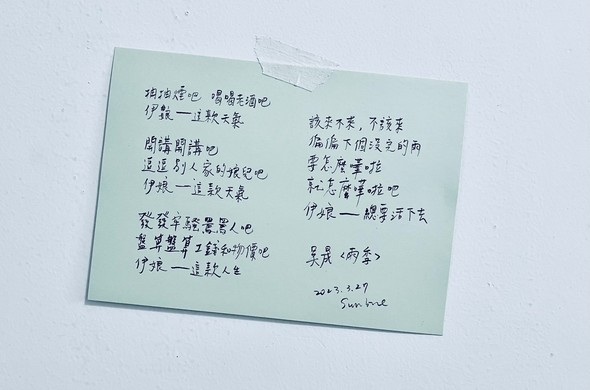 抽抽煙吧 喝喝老酒吧
伊娘——這款天氣
開講開講吧
逗逗別人家的娘兒吧
伊娘——這款天氣
發發牢騷罵罵人吧
盤算盤算工錢和物價吧
伊娘——這款人生
該來不來，不該來
偏偏下個沒完的雨
要怎麼嘩啦
就怎麼嘩啦吧
伊娘——總要活下去
吳晟〈雨季〉
2023.3.27